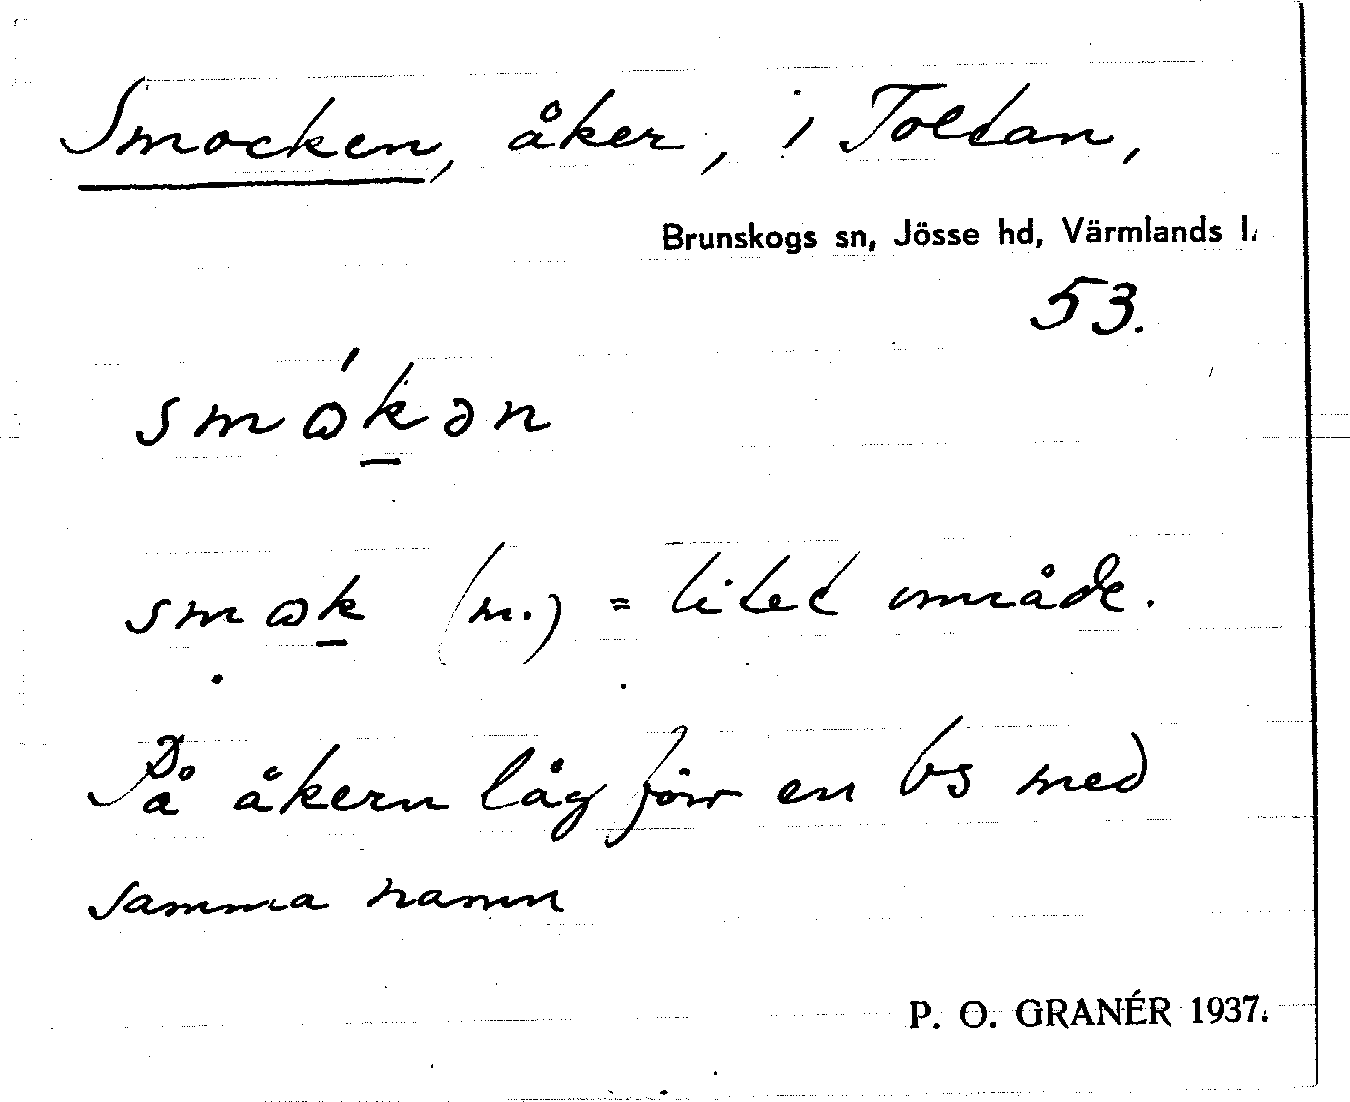 Smocken, åker, i Toltan,
Brunskogs sn, Jösse hd, Värmlands l.
53.
smɷ́k̲ən
smɷk̲ (m.) = litet område.
På åkern låg förr en bs med
samma namn
P. O. GRANÉR 1937.